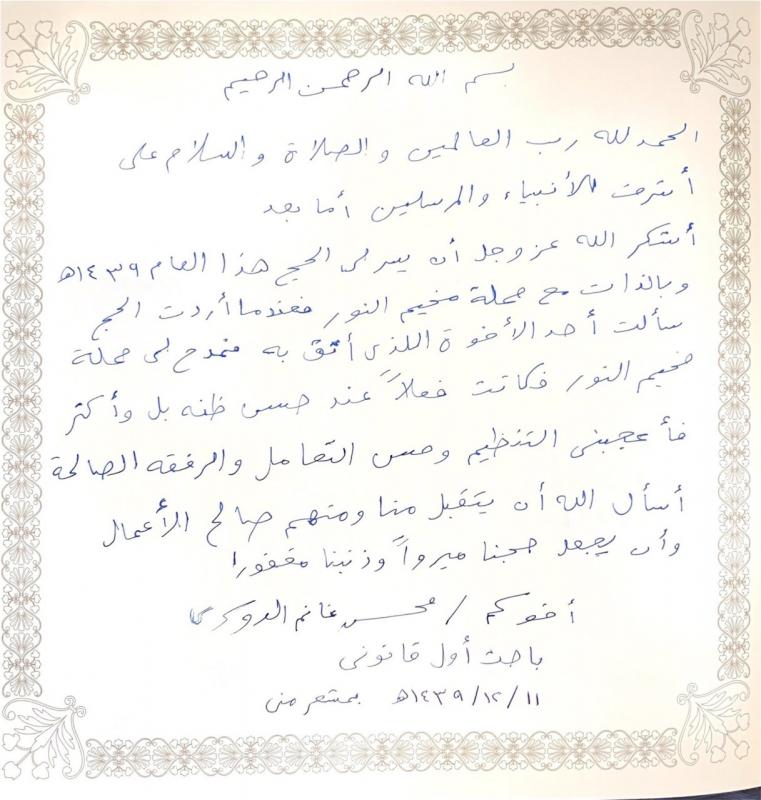 بسم الله الرحمن الرحيم
الحمد لله رب العالمين والصلاة والسلام على
أشرف الأنبياء والمرسلين أما بعد
أشكر الله عز وجل أن يسر لي الحج هذا العام ١٤٣٩هـ
وبالذات مع حملة مخيم النور فعندما أردت الحج
سألت أحد الأخوة اللذي أثق به فمدح لي حملة
مخيم النور فكانت فعلاً عند حسن ظنه بل وأكثر
فأعجبني التنظيم وحسن التعامل والرفقه الصالحة
أسأل الله أن يتقبل منا ومنهم صالح الأعمال
وأن يجعل حجنا مبروراً وذنبنا مغفورا
أخوكم / محسن غانم الدوسري
باحث أول قانوني
١١/١٢/١٤٣٩هـ بمشعر منى